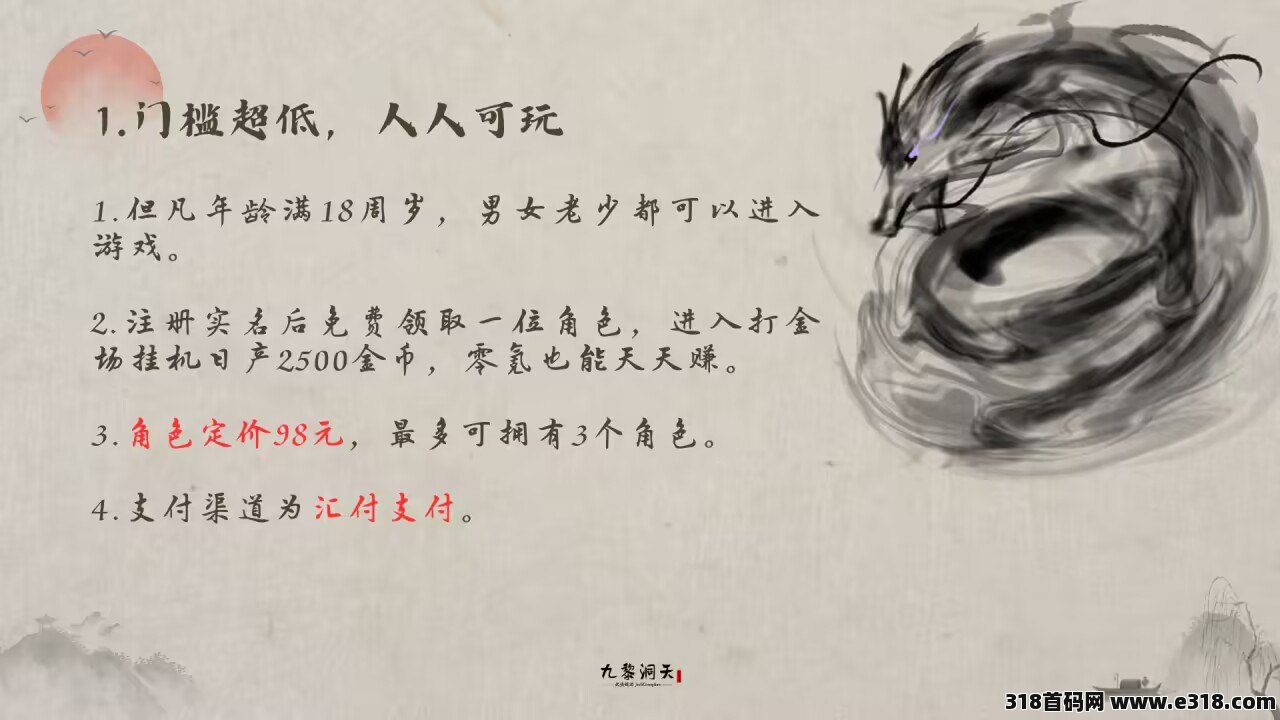 1.门槛超低，人人可玩
1.但凡年龄满18周岁，男女老少都可以进入
游戏。
2.注册实名后免费领取一位角色，进入打金
场挂机日产2500金币，零氪也能天天赚。
3.角色定价98元，最多可拥有3个角色。
4.支付渠道为汇付支付。
九黎洞天
318首码网 www.e318.com